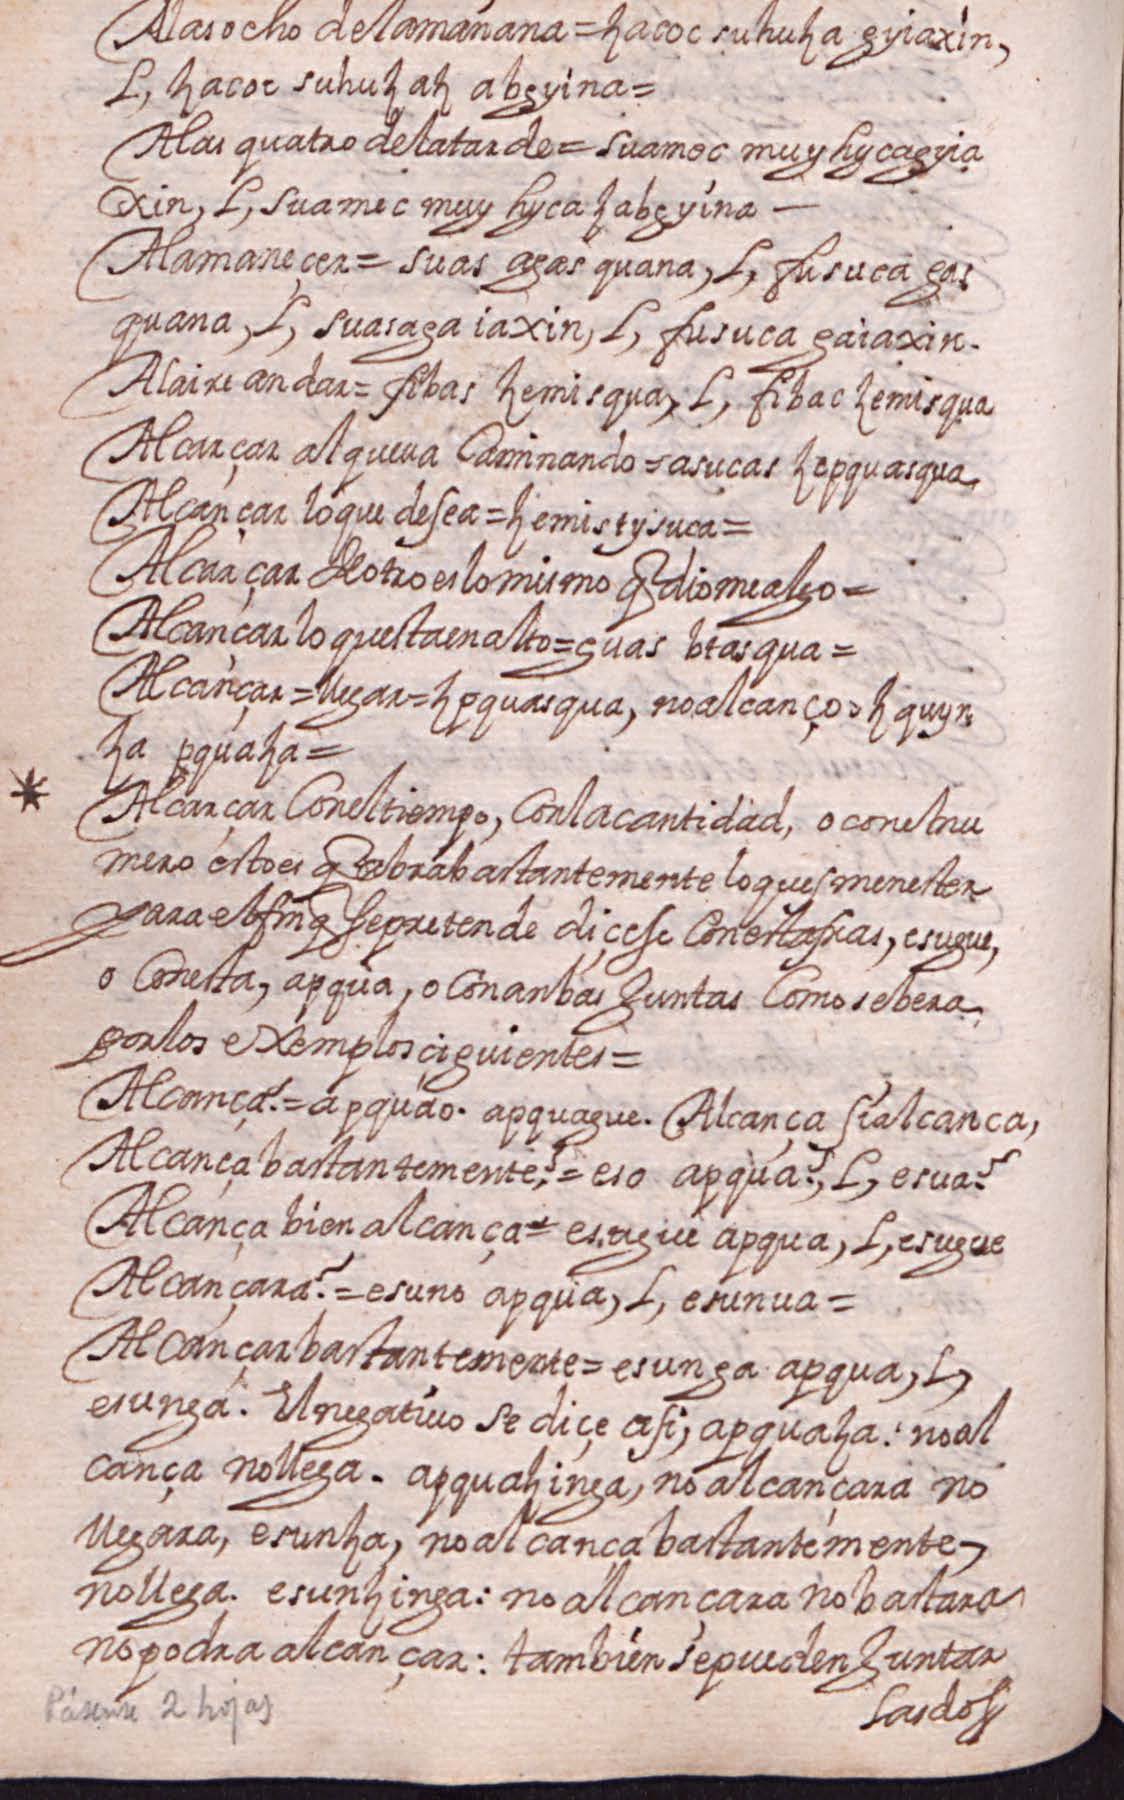 A las ocho de la mañana = hacoc suhuza gyiaxin,
L, hacoc suhuzah abgyina =
A las quatro de la tarde = suamec muyhyca gyia
xin, L, suamec muyhyca zabgyina —
Al amaneçer = suas agas quana, L, fusuca gas
quana, L, suasaga iaxin, L, fusuca gaiaxin.
Al aire andar = fibas zemisqua, L, fibac zemisqua
Alcançar al que va Caminando = asucas zepquasqua
Alcançar lo que desea = zemistysuca =
Alcançar Del otro es lo mismo q̃ diome algo =
Alcançar lo questa en alto = guas btasqua =
Alcançar = llegar = zpquasqua, no alcanço = zquyn
za pquaza =
* Alcançar Con el tiempo, Con la cantidad, o con el nu
mero esto es q̃ abra bastantemente lo ques menester
para el fin q̃ se pretende diçese Con esta fras, esugue,
o Con esta, apqua, o Con anbas Juntas Como se bera
por los exemplos çiguientes =
Alcança? = apquao. apquague. Alcança si alcanca,
Alcança bastantemente? = eso apqua?, L, esua?
Alcança bien alcança = esugue apqua, L, esugue
Alcançara? = esuno apqua, L, esunua =
Alcançar bastantemente = esunga apqua, L,
esunga. El negativo se diçe asi, apquaza: no al
cança no llega. apquazinga, no alcançara no
llegara, esunza, no alcanca bastantemente,
no llega. esunzinga: no alcancara no bastara
no podra alcançar: tambien se pueden Juntar
las dos
Pásense 2 hojas